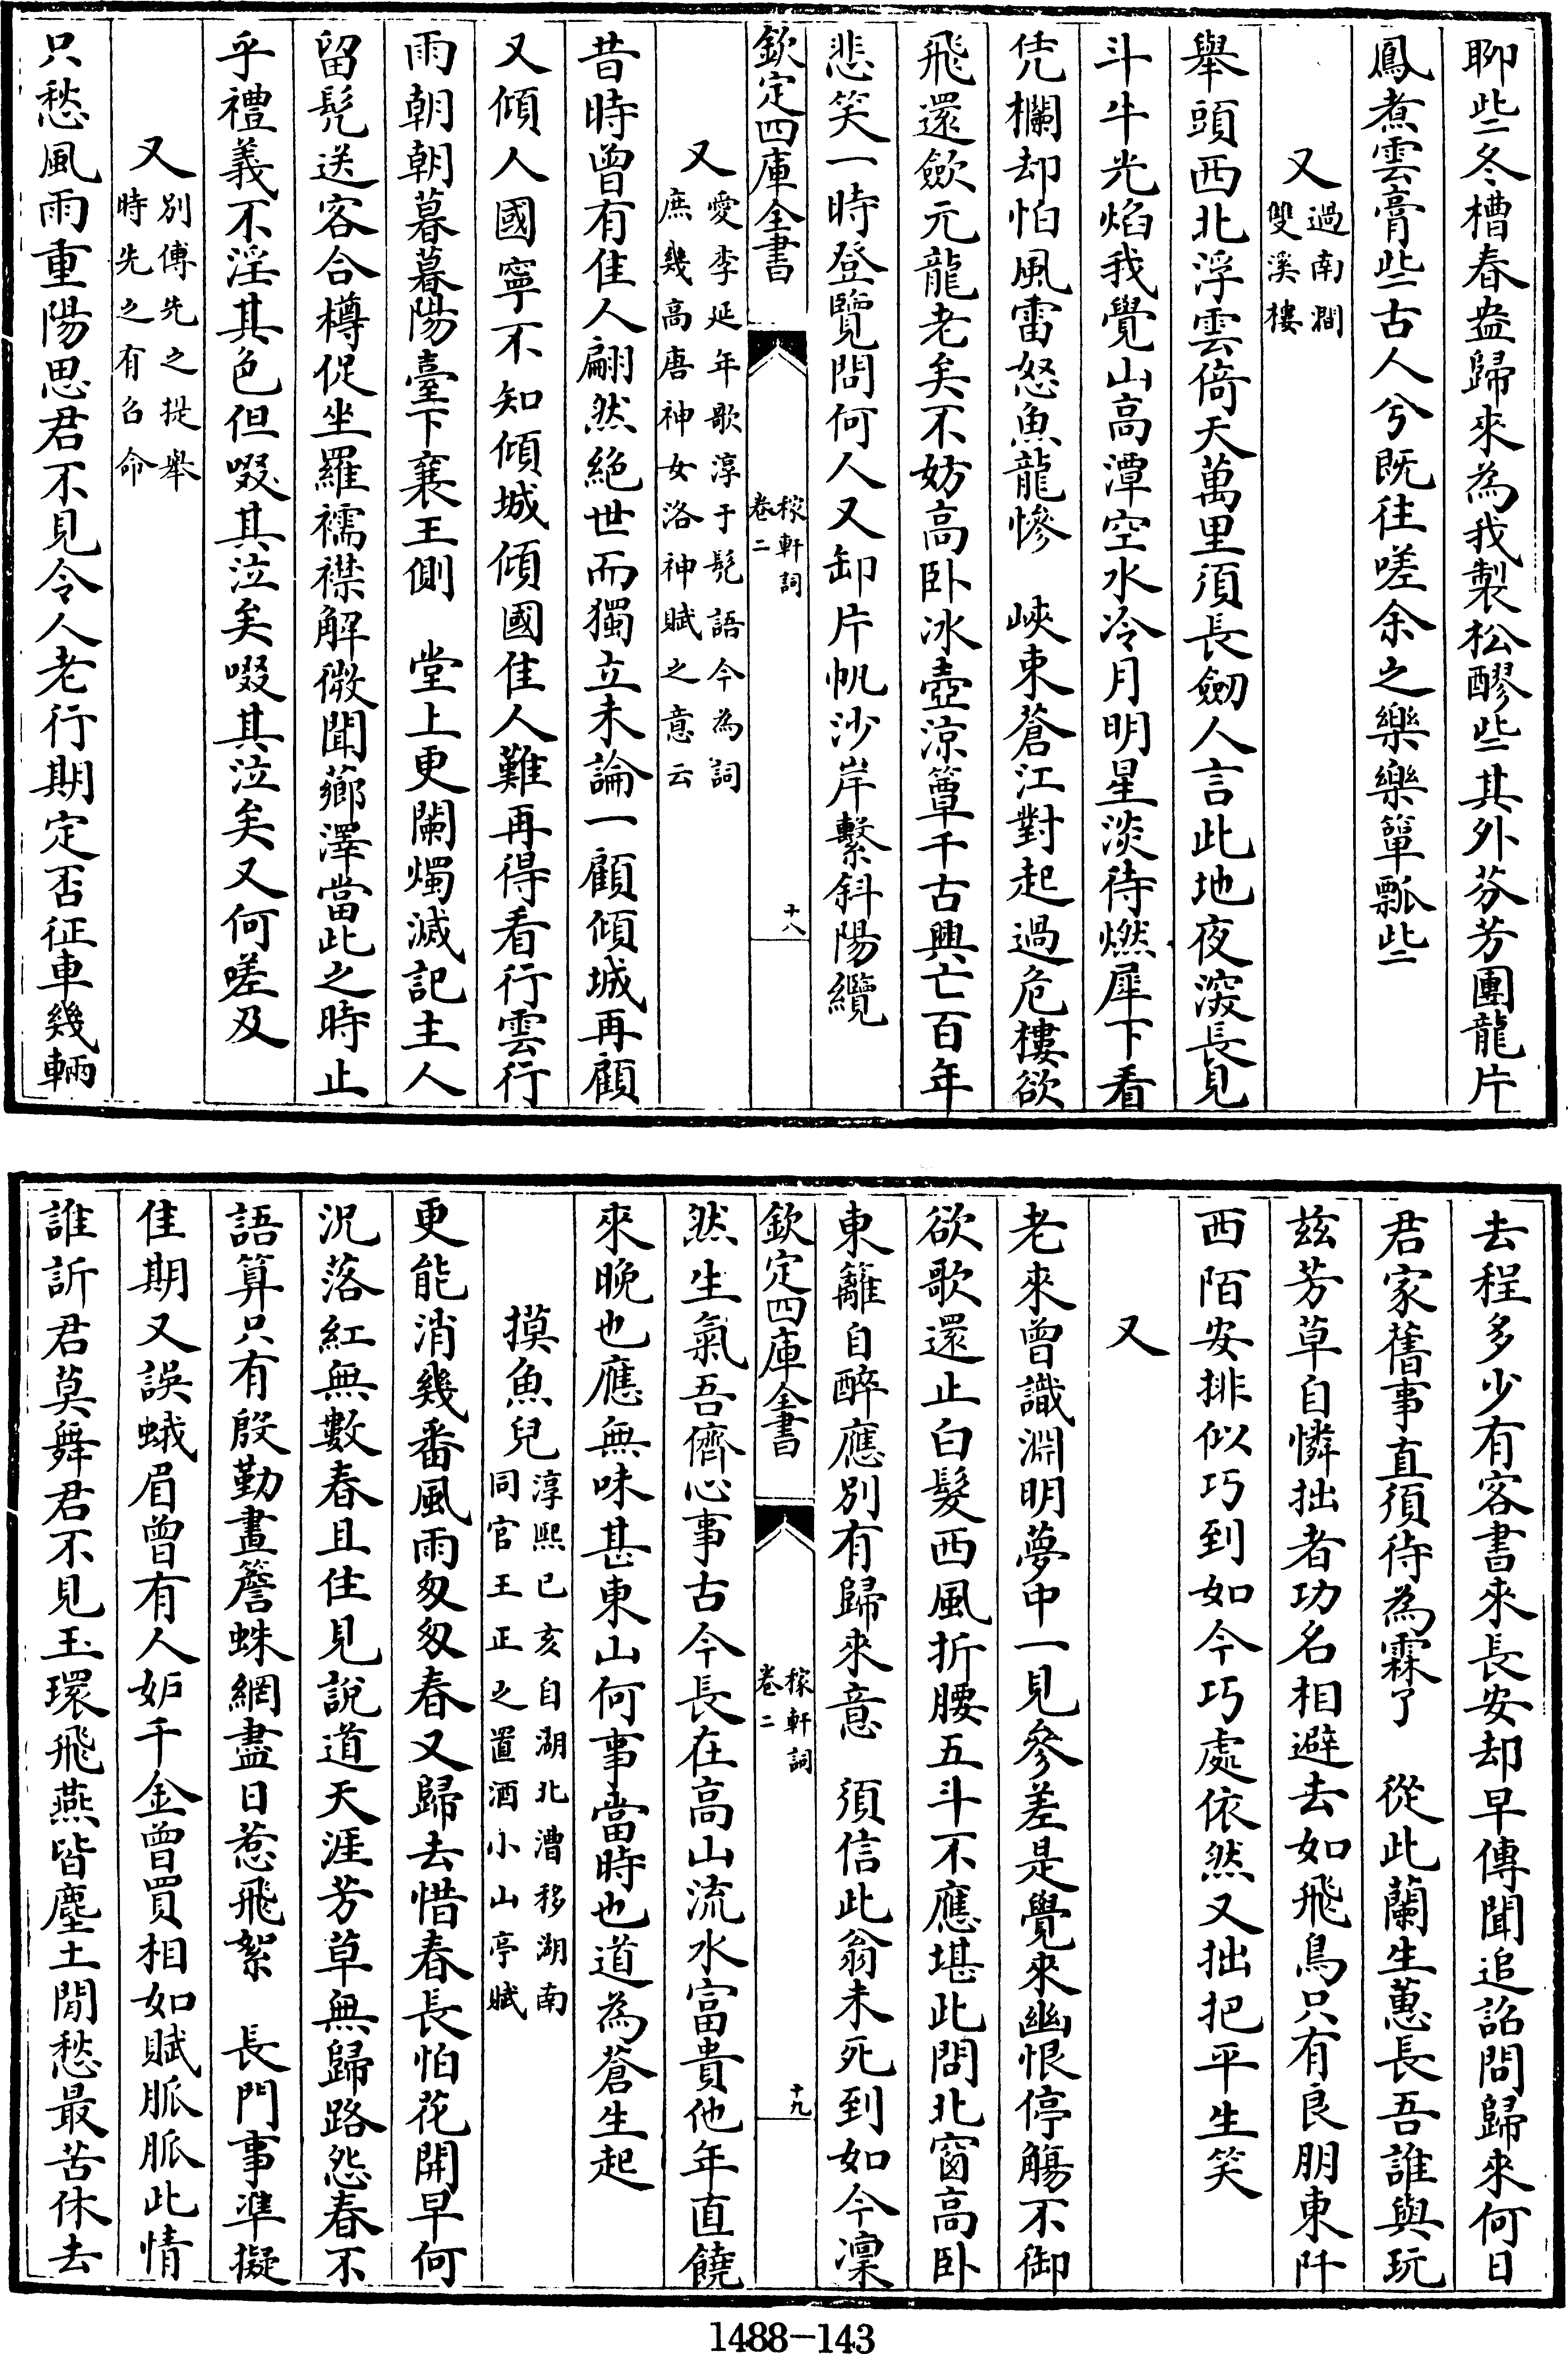 聊些冬槽春盎歸來為我製松醪些其外芬芳團龍片
鳳煮雲膏些古人兮既往嗟余之樂樂簞瓢些
又過南澗
雙溪樓
舉頭西北浮雲倚天萬里須長劒人言此地夜深長見
斗牛光焰我覺山高潭空水冷月明星淡待燃犀下看
凭欄却怕風雷怒魚龍慘　峽束蒼江對起過危樓欲
飛還歛元龍老矣不妨高卧冰壺涼簟千古興亡百年
悲笑一時登覽問何人又卸片帆沙岸繫斜陽纜
欽定四庫全書
稼軒詞
卷二
十八
又愛李延年歌淳于髠語今為詞
庶幾高唐神女洛神賦之意云
昔時曾有佳人翩然絶世而獨立未論一顧傾城再顧
又傾人國寧不知傾城傾國佳人難再得看行雲行
雨朝朝暮暮陽臺下襄王側　堂上更闌燭滅記主人
留髠送客合樽促坐羅襦襟解微聞薌澤當此之時止
乎禮義不淫其色但啜其泣矣啜其泣矣又何嗟及
又别傅先之提舉
時先之有召命
只愁風雨重陽思君不見令人老行期定否征車幾輛
去程多少有客書來長安却早傳聞追詔問歸來何日
君家舊事直須待為霖了　從此蘭生蕙長吾誰與玩
兹芳草自憐拙者功名相避去如飛鳥只有良朋東阡
西陌安排似巧到如今巧處依然又拙把平生笑
又
老來曾識淵明夢中一見參差是覺來幽恨停觴不御
欲歌還止白髮西風折腰五斗不應堪此問北窗高卧
東籬自醉應别有歸來意　須信此翁未死到如今凜
欽定四庫全書
稼軒詞
卷二
十九
然生氣吾儕心事古今長在高山流水富貴他年直饒
來晚也應無味甚東山何事當時也道為蒼生起
摸魚兒淳熙已亥自湖北漕移湖南
同官王正之置酒小山亭賦
更能消幾番風雨匆匆春又歸去惜春長怕花開早何
況落紅無數春且住見說道天涯芳草無歸路怨春不
語算只有殷勤畫簷蛛網盡日惹飛絮　長門事準擬
佳期又誤蛾眉曾有人妒千金曾買相如賦脈脈此情
誰訴君莫舞君不見玉環飛燕皆塵土閒愁最苦休去
1488-143